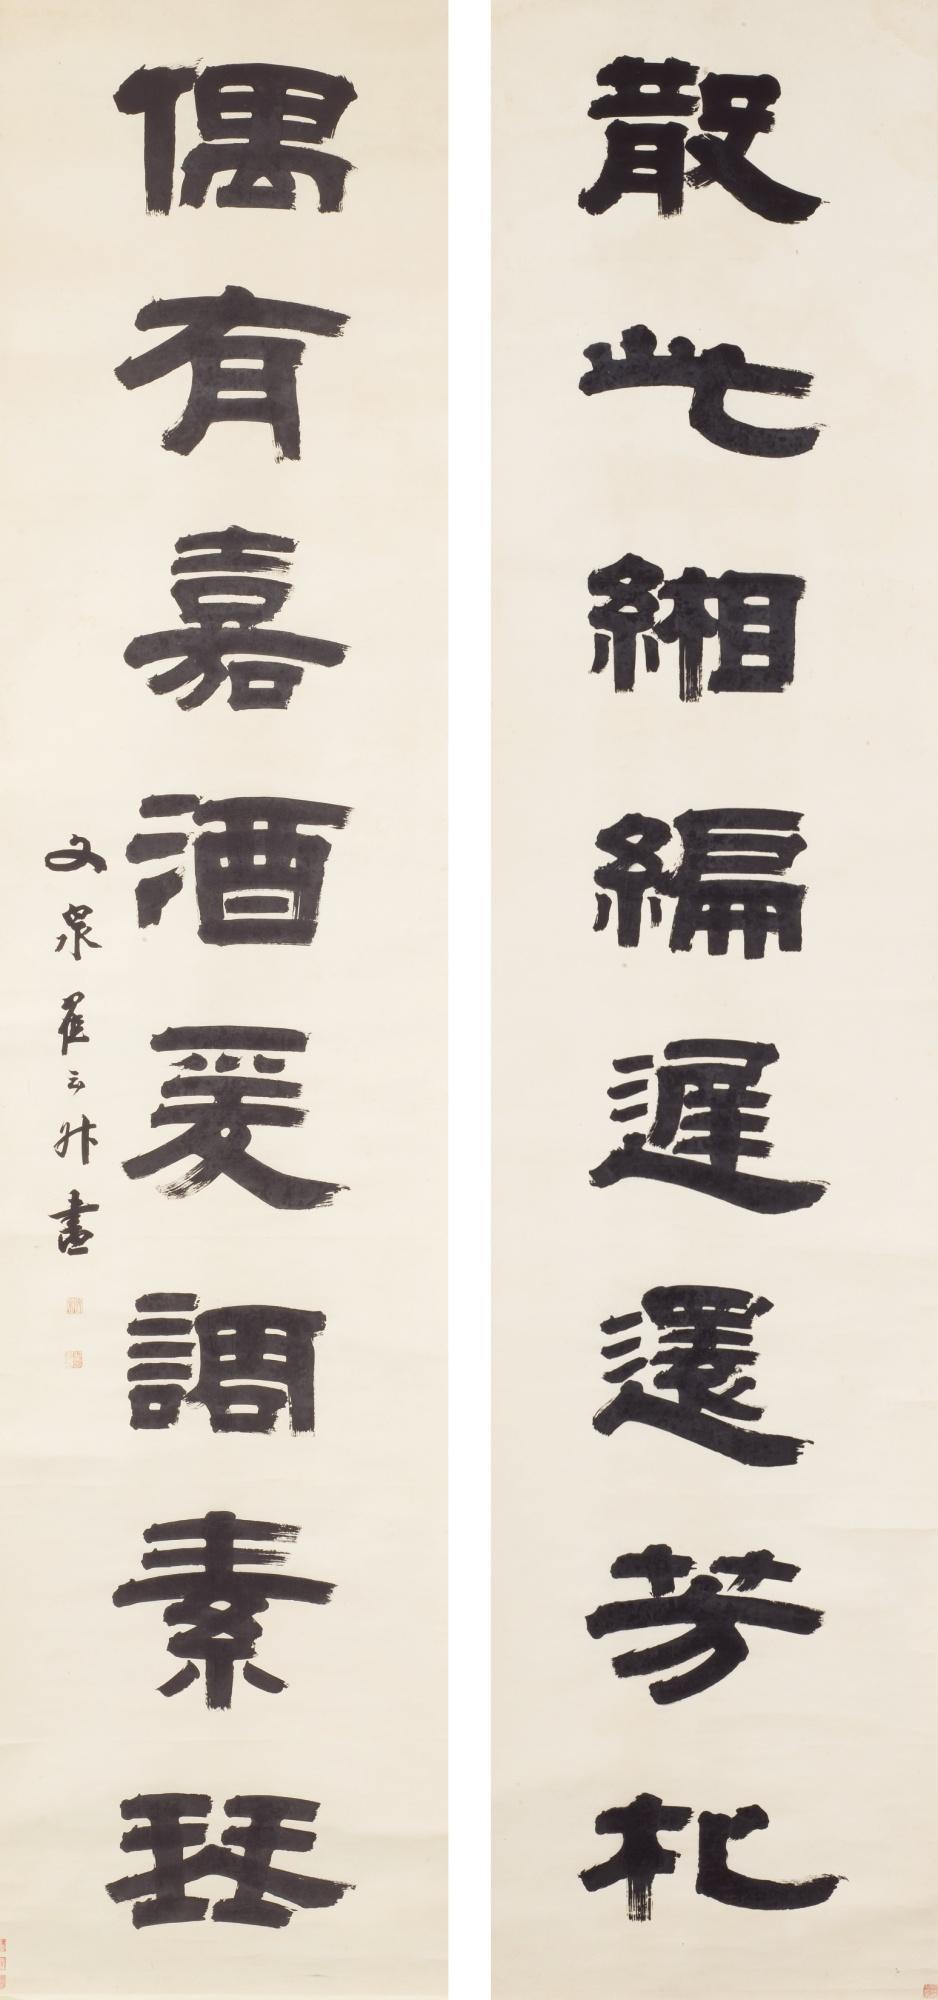 散此緗編遲還芳札
偶有嘉酒爰調素琴
文泉翟云升書